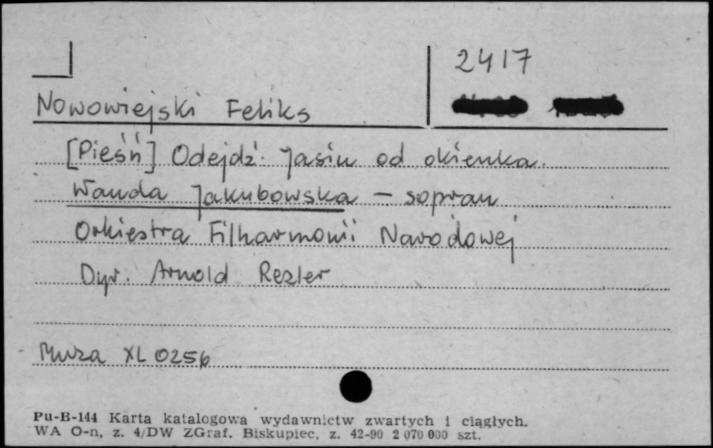 2417
Nowowiejski Feliks
[Pieśń] Odejdź Jasiu od okienka.
Wanda Jakubowska – sopran
Orkiestra Filharmonii Narodowej
Dyr. Arnold Rezler
Muza XL 0256
Pu-B-144 Karta katalogowa wydawnictw zwartych i ciągłych.
WA O-n, z. 4/DW ZGraf. Biskupiec, z. 42-90 2 070 000 szt.